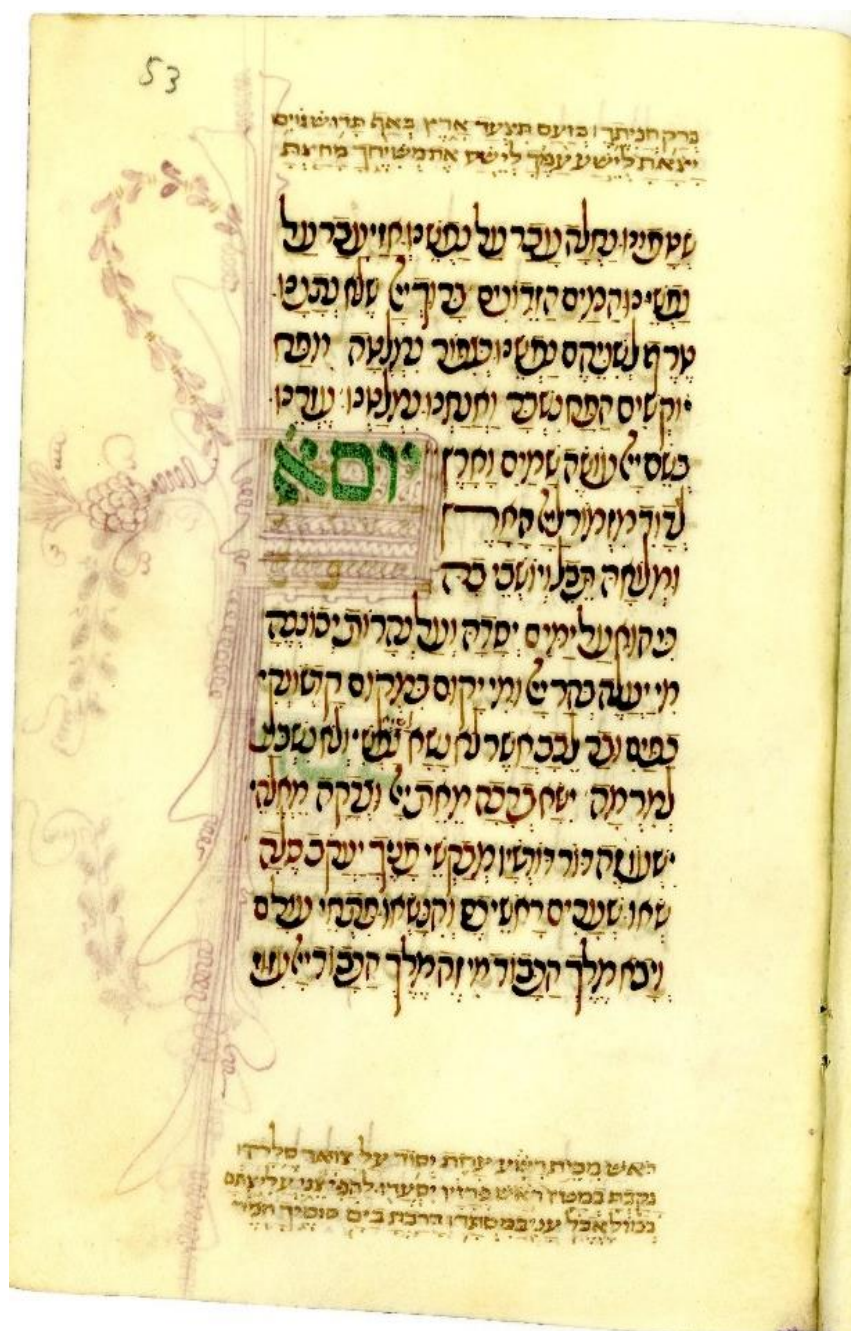 ברק חניתך: בזעם תצעד ארץ באף תדוש גוים
יצאת לישע עמך לישע את משיחך מחצת
שטפונו נחלה עבר על נפשנו אזי עבר על
נפשנו המים הזדונים ברוך יי שלא נתננו
טרף לשניהם נפשנו כצפור נמלטה מפח
יוקשים הפח נשבר ואנחנו נמלטנו עזרנו
בשם יי עושה שמים וארץ
יום א
לדוד מזמור ליי הארץ
ומלואה תבל ויושבי בה
כי הוא על ימים יסדה ועל נהרות יכוננה
מי יעלה בהר יי ומי יקום במקום קדשו נקי
כפים ובר לבב אשר לא נשא נפשי ולא נשבע
למרמה ישא ברכה מאת יי וצדקה מאלהי
ישעו זה דור דורשיו מבקשי פניך יעקב סלה
שאו שערים ראשיכם והנשאו פתחי עולם
ויבא מלך הכבוד מי זה מלך הכבוד יי עזוז
ראש מבית רשע ערות יסוד על צואר סלה:
נקבת במטיו ראש פרזיו יסערו להפיצני עליצתם
כמו לאכל עני במסתר: דרכת בים סוסיך חמר
53